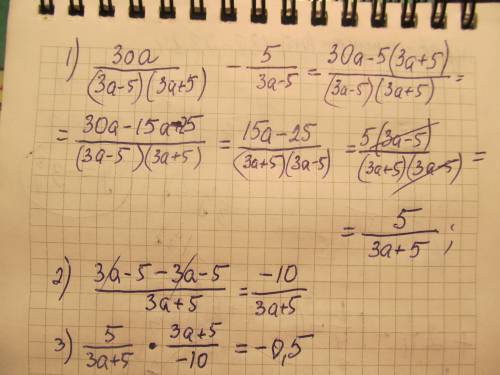 1) 30a/((3a-5)(3a+5)) - 5/(3a-5) = (30a-5(3a+5))/((3a-5)(3a+5)) =
= (30a-15a-25)/((3a-5)(3a+5)) = (15a-25)/((3a+5)(3a-5)) = 5(3a-5)/((3a+5)(3a-5)) =
= 5/(3a+5) ;
2) (3a-5-3a-5)/(3a+5) = -10/(3a+5)
3) 5/(3a+5) • (3a+5)/-10 = -0,5